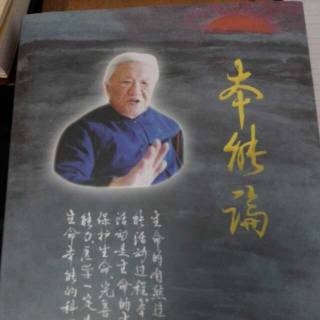 本能論
生命的自然过
能活动过程
活动是生命的
保护生命、完善
能力医学一定
生命本能的科